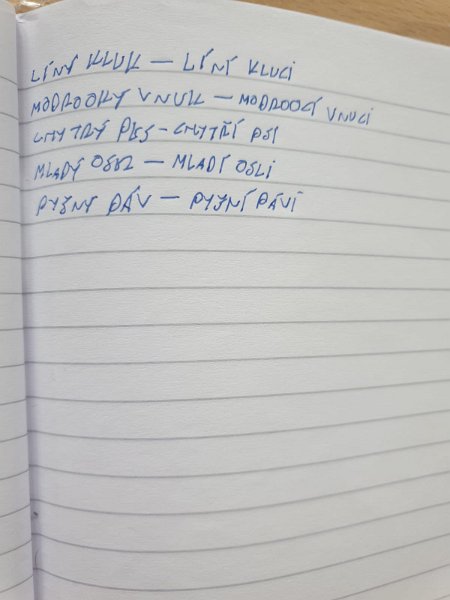 LÍNÝ KLUK — LÍNÍ KLUCI
MODROOKÝ VNUK — MODROOCÍ VNUCI
CHYTRÝ PES - CHYTŘÍ PSI
MLADÝ OSEL — MLADÍ OSLI
PYŠNÝ PÁV — PYŠNÍ PÁVI